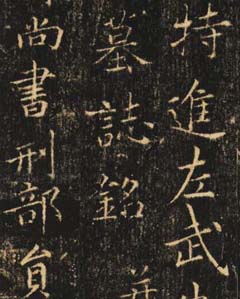 特進左武
墓誌銘
尚書刑部員